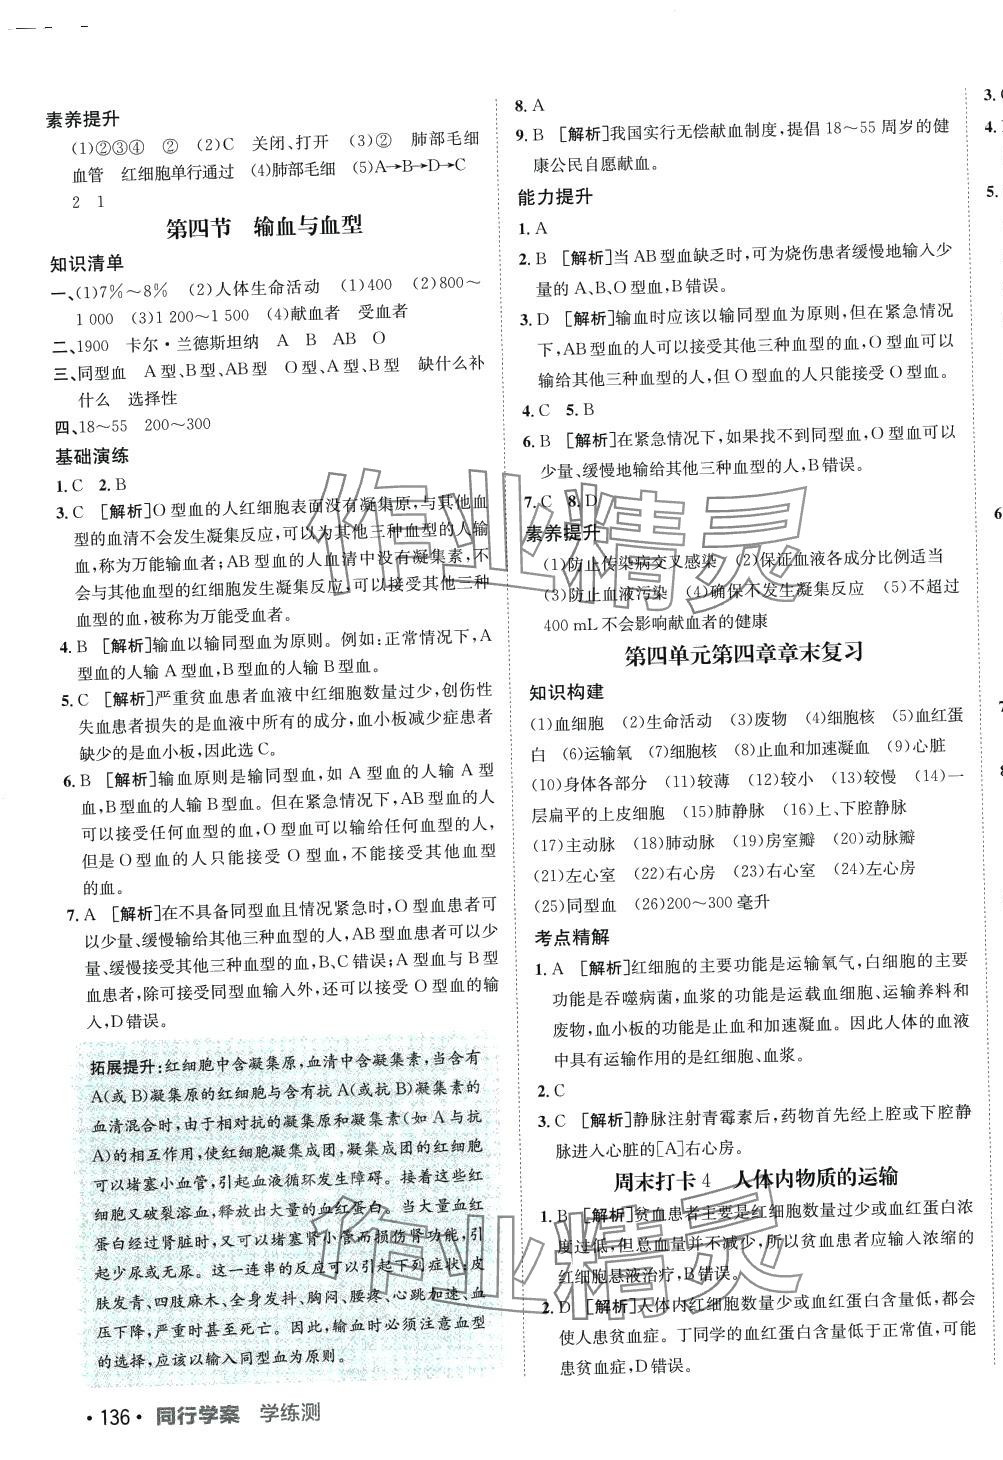 素养提升
(1)②③④　②　(2)C　关闭、打开　(3)②　肺部毛细
血管　红细胞单行通过　(4)肺部毛细　(5)A→B→D→C
2　1
第四节　输血与血型
知识清单
一、(1)7%～8%　(2)人体生命活动　(1)400　(2)800～
1 000　(3)1 200～1 500　(4)献血者　受血者
二、1900　卡尔·兰德斯坦纳　A　B　AB　O
三、同型血　A型、B型、AB型　O型、A型、B型　缺什么补
什么　选择性
四、18～55　200～300
基础演练
1. C　2. B
3. C　[解析]O型血的人红细胞表面没有凝集原,与其他血
型的血清不会发生凝集反应,可以为其他三种血型的人输
血,称为万能输血者;AB型血的人血清中没有凝集素,不
会与其他血型的红细胞发生凝集反应,可以接受其他三种
血型的血,被称为万能受血者。
4. B　[解析]输血以输同型血为原则。例如:正常情况下,A
型血的人输A型血,B型血的人输B型血。
5. C　[解析]严重贫血患者血液中红细胞数量过少,创伤性
失血患者损失的是血液中所有的成分,血小板减少症患者
缺少的是血小板,因此选C。
6. B　[解析]输血原则是输同型血,如A型血的人输A型
血,B型血的人输B型血。但在紧急情况下,AB型血的人
可以接受任何血型的血,O型血可以输给任何血型的人,
但是O型血的人只能接受O型血,不能接受其他血型
的血。
7. A　[解析]在不具备同型血且情况紧急时,O型血患者可
以少量、缓慢输给其他三种血型的人,AB型血患者可少
量、缓慢接受其他三种血型的血,B、C错误;A型血与B型
血患者,除可接受同型血输入外,还可以接受O型血的输
入,D错误。
拓展提升:红细胞中含凝集原,血清中含凝集素,当含有
A(或B)凝集原的红细胞与含有抗A(或抗B)凝集素的
血清混合时,由于相对抗的凝集原和凝集素(如A与抗
A)的相互作用,使红细胞凝集成团,凝集成团的红细胞
可以堵塞小血管,引起血液循环发生障碍。接着这些红
细胞又破裂溶血,释放出大量的血红蛋白。当大量血红
蛋白经过肾脏时,又可以堵塞肾小管而损伤肾功能,引
起少尿或无尿。这一连串的反应可以引起下列症状:皮
肤发青、四肢麻木、全身发抖、胸闷、腰疼、心跳加速、血
压下降,严重时甚至死亡。因此,输血时必须注意血型
的选择,应该以输入同型血为原则。
·136·　同行学案　学练测
8. A
9. B　[解析]我国实行无偿献血制度,提倡18～55周岁的健
康公民自愿献血。
能力提升
1. A
2. B　[解析]当AB型血缺乏时,可为烧伤患者缓慢地输入少
量的A、B、O型血,B错误。
3. D　[解析]输血时应该以输同型血为原则,但在紧急情况
下,AB型血的人可以接受其他三种血型的血,O型血可以
输给其他三种血型的人,但O型血的人只能接受O型血。
4. C　5. B
6. B　[解析]在紧急情况下,如果找不到同型血,O型血可以
少量、缓慢地输给其他三种血型的人,B错误。
7. C　8. D
素养提升
(1)防止传染病交叉感染　(2)保证血液各成分比例适当
(3)防止血液污染　(4)确保不发生凝集反应　(5)不超过
400 mL不会影响献血者的健康
第四单元第四章章末复习
知识构建
(1)血细胞　(2)生命活动　(3)废物　(4)细胞核　(5)血红蛋
白　(6)运输氧　(7)细胞核　(8)止血和加速凝血　(9)心脏
(10)身体各部分　(11)较薄　(12)较小　(13)较慢　(14)一
层扁平的上皮细胞　(15)肺静脉　(16)上、下腔静脉
(17)主动脉　(18)肺动脉　(19)房室瓣　(20)动脉瓣
(21)左心室　(22)右心房　(23)右心室　(24)左心房
(25)同型血　(26)200～300毫升
考点精解
1. A　[解析]红细胞的主要功能是运输氧气,白细胞的主要
功能是吞噬病菌,血浆的功能是运载血细胞、运输养料和
废物,血小板的功能是止血和加速凝血。因此人体的血液
中具有运输作用的是红细胞、血浆。
2. C
3. C　[解析]静脉注射青霉素后,药物首先经上腔或下腔静
脉进入心脏的[A]右心房。
周末打卡4　人体内物质的运输
1. B　[解析]贫血患者主要是红细胞数量过少或血红蛋白浓
度过低,但总血量并不减少,所以贫血患者应输入浓缩的
红细胞悬液治疗,B错误。
2. D　[解析]人体内红细胞数量少或血红蛋白含量低,都会
使人患贫血症。丁同学的血红蛋白含量低于正常值,可能
患贫血症,D错误。
作业精灵
作业精灵
3.
4.
5.
6
7
8